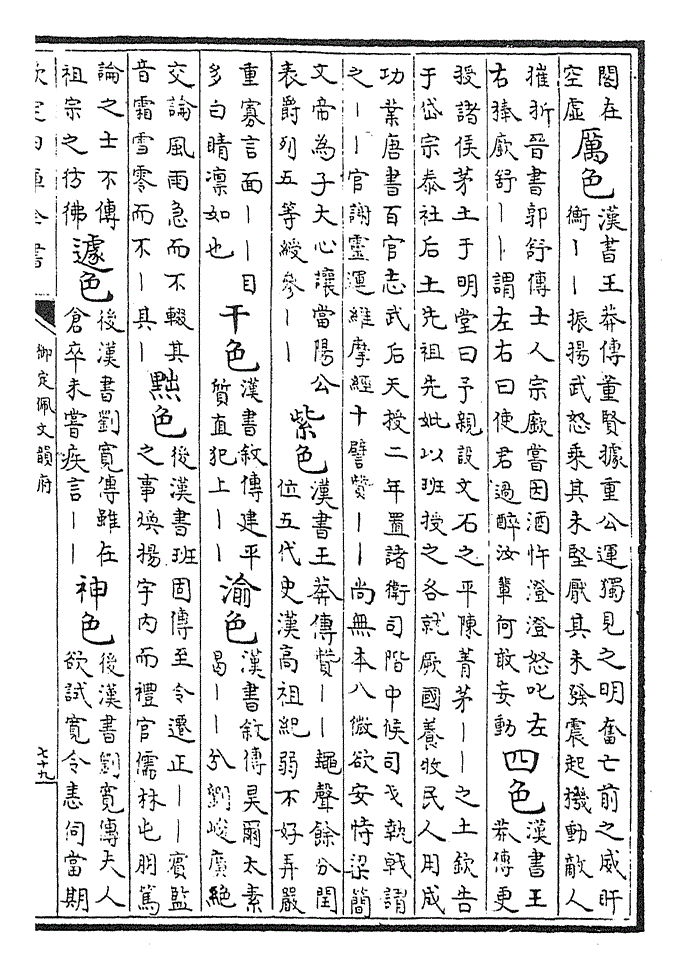 閣在
空虛
厲色
漢書王莽傳董賢據重公運獨見之明奮亡前之威盱
衡丨丨振揚武怒乘其未堅厭其未發震起機動敵人
摧折晉書郭舒傳士人宗廞嘗因酒忤澄澄怒叱左
右捧廞舒丨丨謂左右曰使君過醉汝輩何敢妄動
四色
漢書王
莽傳更
授諸侯茅土于明堂曰予親設文石之平陳菁茅丨丨之土欽告
于岱宗泰社后土先祖先妣以班授之各就厥國養牧民人用成
功業唐書百官志武后天授二年置諸衛司階中候司戈執戟謂
之丨丨官謝靈運維摩經十譬贊丨丨尚無本八微欲安恃梁簡
文帝為子大心讓當陽公
表爵列五等綬參丨丨
紫色
漢書王莽傳贊丨丨䵷聲餘分閏
位五代史漢高祖紀弱不好弄嚴
重寡言面丨丨目
多白睛凛如也
干色
漢書敘傳建平
質直犯上丨丨
渝色
漢書敘傳昊爾太素
曷丨丨兮劉峻廣絶
交論風雨急而不輟其
音霜雪零而不丨其丨
黜色
後漢書班固傳至令遷正丨丨賓監
之事煥揚宇内而禮官儒林屯朋篤
論之士不傳
祖宗之彷彿
遽色
後漢書劉寛傳雖在
倉卒未嘗疾言丨丨
神色
後漢書劉寛傳夫人
欲試寛令恚伺當期
欽定四庫全書
御定佩文韻府
七十九